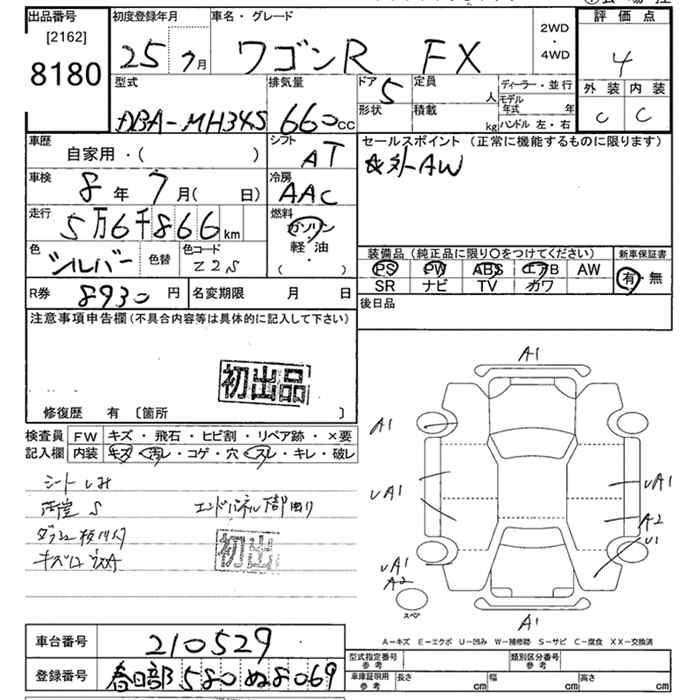 出品番号
[2162]
8180
初度登録年月
25 7月
車名・グレード
ワゴンR FX
2WD
・
4WD
評価点
4
外装 内装
C C
型式
DBA-MH34S
排気量
660cc
ドア 5
形状
定員 人
積載 kg
ディーラー・並行
モデル年式 年
ハンドル 左・右
車歴
自家用・( )
シフト
AT
セールスポイント (正常に機能するものに限ります)
社外AW
車検
8年 7月( 日)
冷房
AAC
走行
5万6千866km
燃料
ガソリン
軽・油
( )
色
シルバー
色替
色コード
Z2S
装備品 (純正品に限り〇をつけてください)
PS PW ABS エアB AW
SR ナビ TV カワ
新車保証書
有・無
R券 8930円
名変期限 月 日
後日品
注意事項申告欄(不具合内容等は具体的に記入して下さい)
初出品
修復歴 有 〔箇所 〕
検査員記入欄
FW キズ・飛石・ヒビ割・リペア跡・×要
内装 キズ・汚レ・コゲ・穴・スレ・キレ・破レ
シートしみ
S
エンドパネル
初出
A1
A1
UA1
UA1
A2
U1
UA1
A2
A1
スペア
A-キズ E-エクボ U-凹み W-補修跡 S-サビ C-腐食 XX-交換済
車台番号 210529
登録番号 春日部 580 ぬ 8069
型式指定番号 参考
類別区分番号 参考
車庫証明用 参考
長さ cm 幅 cm 高さ cm